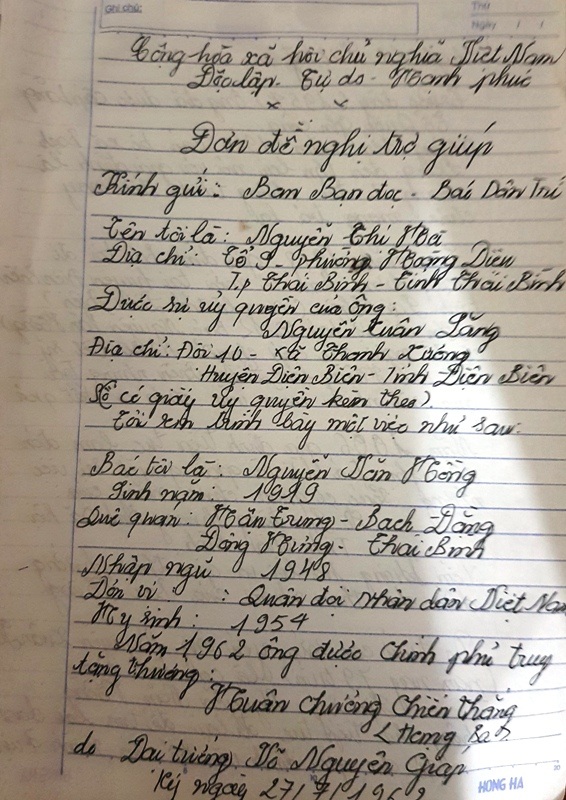 Ghi chú:
Thứ
Ngày / /
Cộng hòa xã hội chủ nghĩa Việt Nam
Độc lập - Tự do - Hạnh phúc
Đơn đề nghị trợ giúp
Kính gửi: Ban Bạn đọc - Báo Dân Trí
Tên tôi là: Nguyễn Thị Hà
Địa chỉ: Tổ 9 phường Hoàng Diệu
T.p Thái Bình - Tỉnh Thái Bình
Được sự ủy quyền của ông:
Nguyễn Xuân Lăng
Địa chỉ: Đội 10 - xã Thanh Xương
Huyện Điện Biên - Tỉnh Điện Biên
có giấy ủy quyền kèm theo)
Tôi xin trình bày một việc như sau:
Bác tôi là: Nguyễn Văn Hồng
Sinh năm: 1919
Quê quán: Hân Trung - Bạch Đằng
Đông Hưng - Thái Bình
Nhập ngũ 1948
Đơn vị : Quân đội nhân dân Việt Nam
Hy sinh: 1954
Năm 1962 ông được Chính phủ truy
tặng thưởng:
Huân chương Chiến thắng
do Đại tướng Võ Nguyên Giáp
Ký ngày 27/7/1962
HONG HA